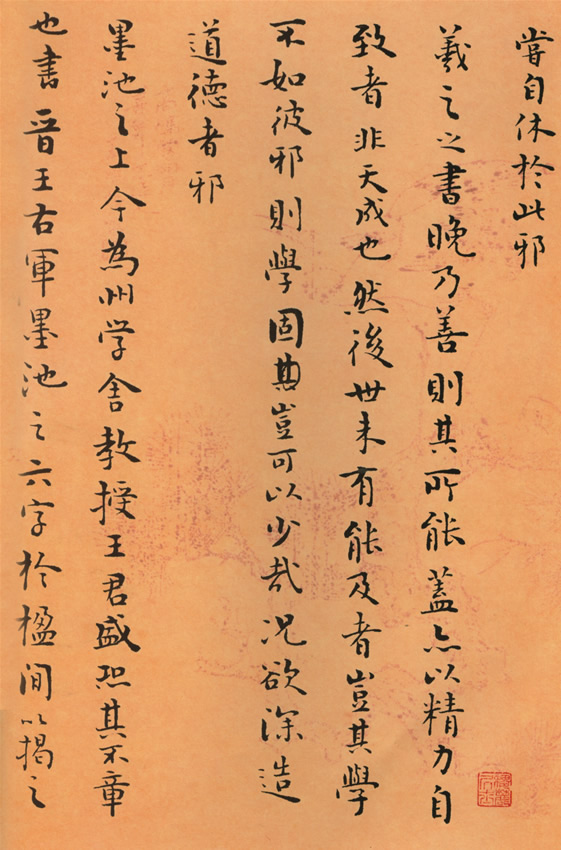 嘗自休於此邪
羲之之書晚乃善則其所能蓋亦以精力自
致者非天成也然後世未有能及者豈其學
不如彼邪則學固其豈可以少哉况欲深造
道德者邪
墨池之上今為州学舍教授王君盛恐其不章
也書晉王右軍墨池之六字於楹間以揭之